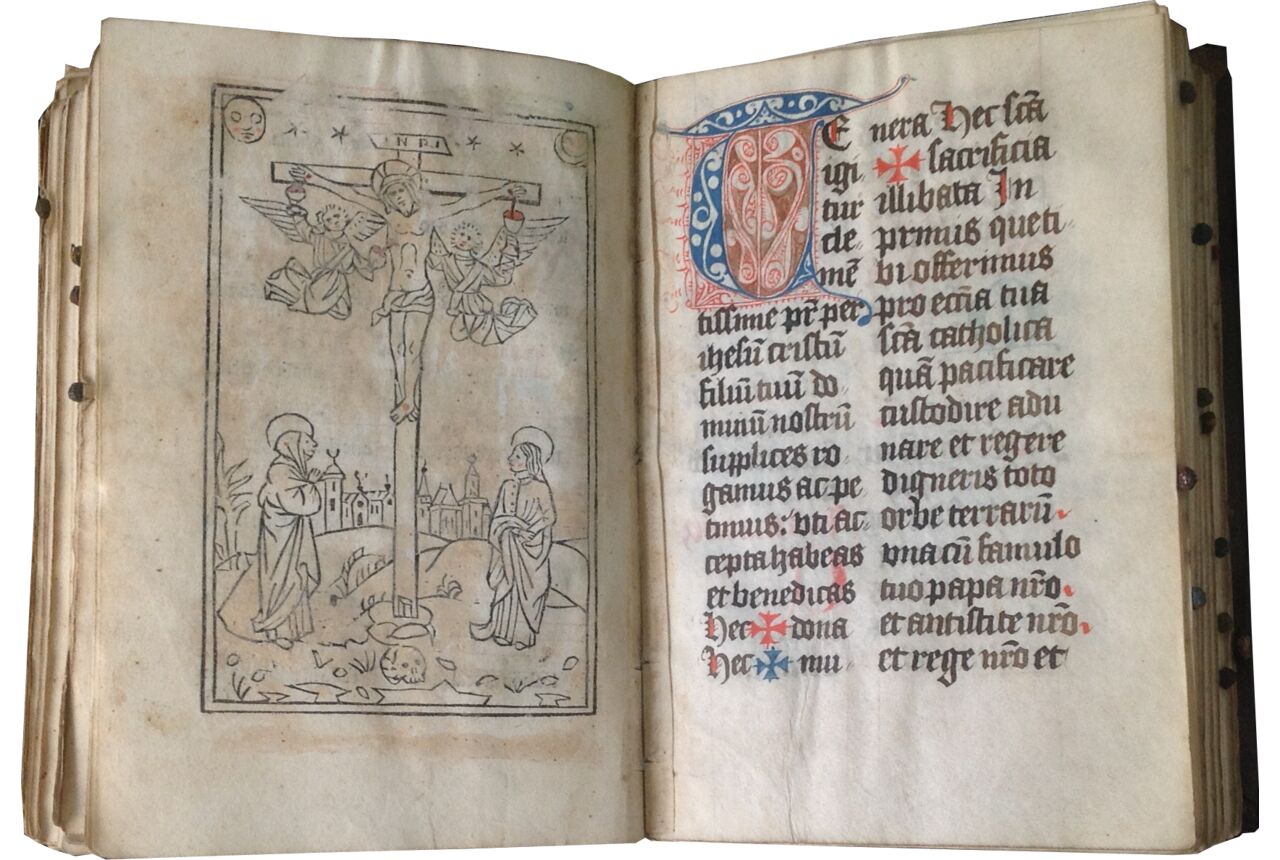 INRI
TE
igi
tur
cle
mē
tissime pr̄ per
ihesū cristū
filiū tuū do-
minū nostrū
supplices ro-
gamus ac pe
timus: vti ac-
cepta habeas
et benedicas
Hec ✠ dona
Hec ✠ mu-
nera Hec scā
✠ sacrificia
illibata In
primis que ti-
bi offerimus
pro eccīa tua
scā catholica
quā pacificare
custodire adu
nare et regere
digneris toto
orbe terrarū
vna cū famulo
tuo papa nr̄o
et antistite nr̄o
et rege nr̄o et